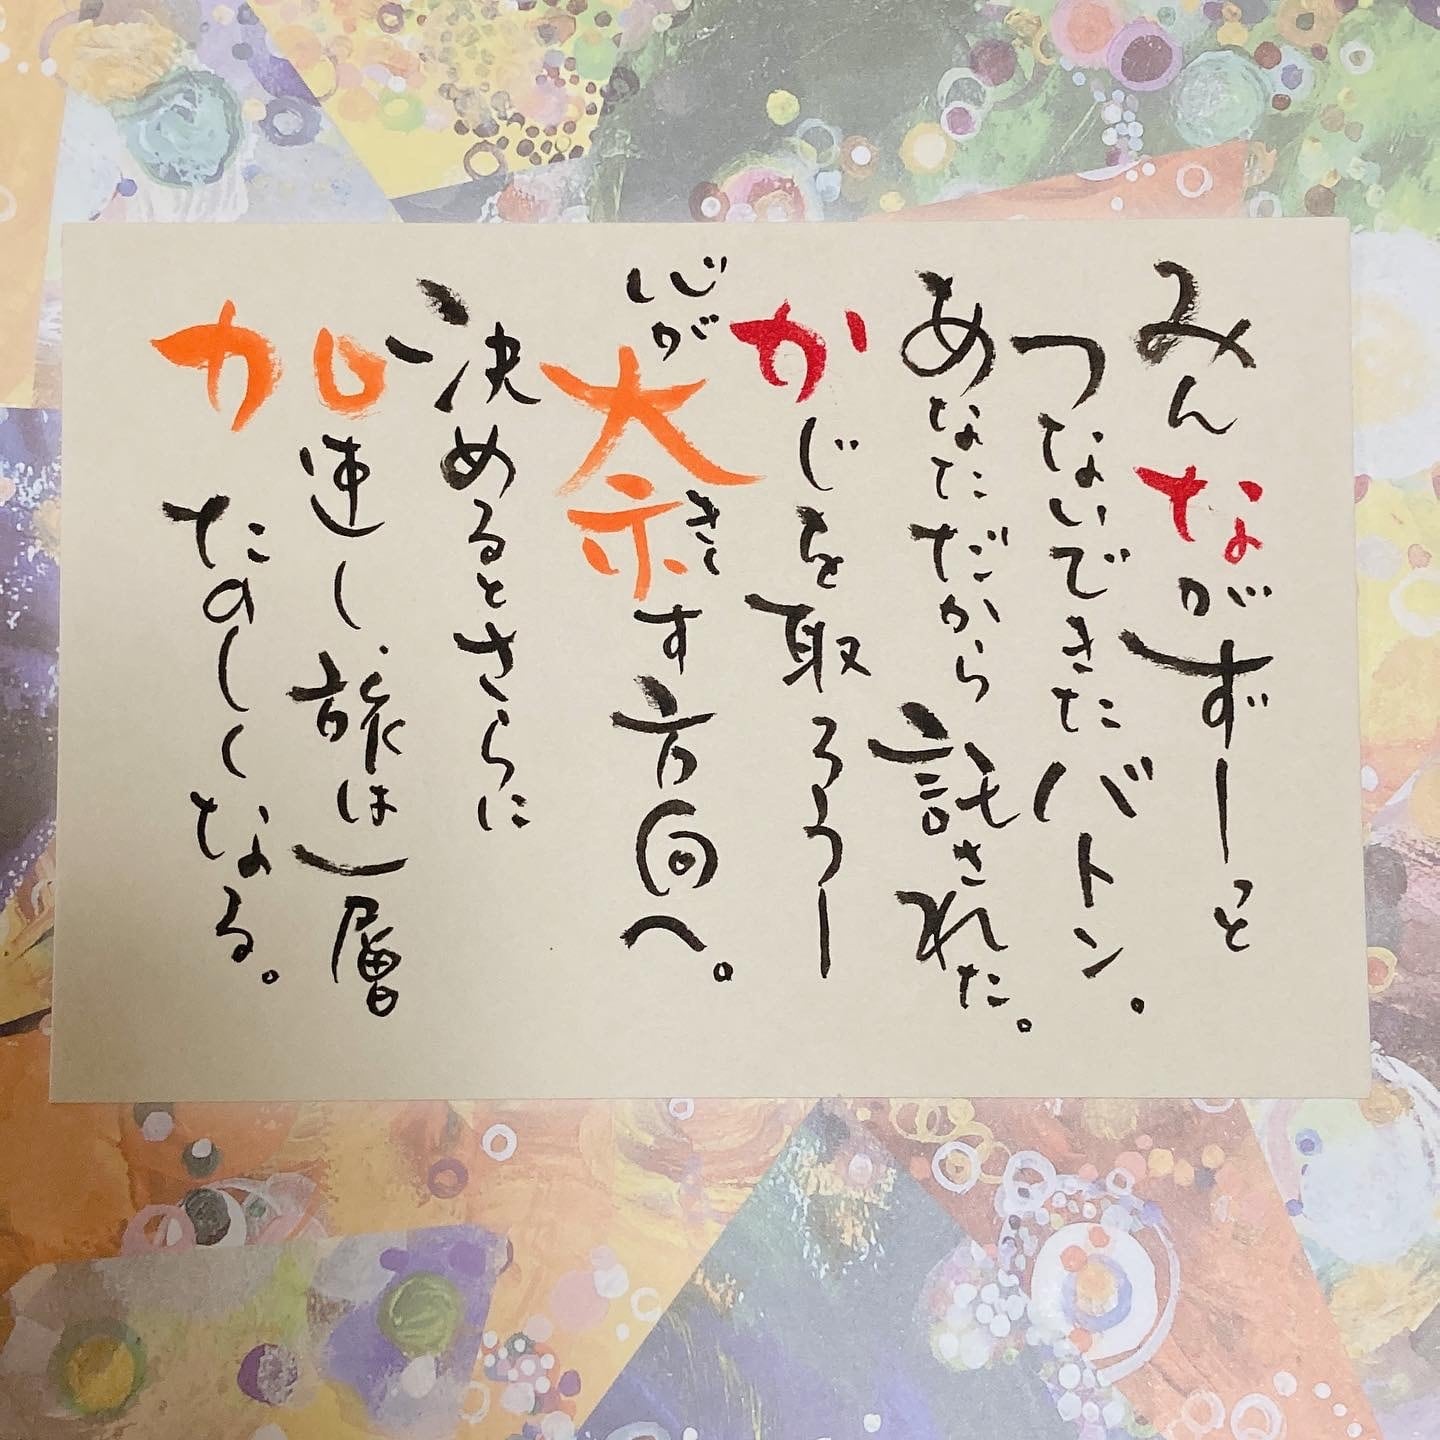 みんながずーっと
つないできたバトン。
あなただから託された。
かじを取ろうー
心が大きく示す方向へ。
決めるとさらに
加速し、旅は一層
たのしくなる。